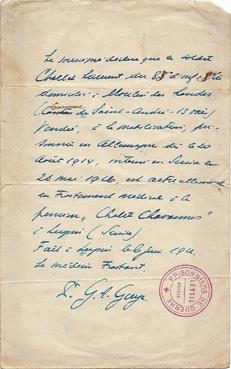 Le soussigné déclare que le soldat
Challet Laurent du 8
domicilié à Moulin des Landes
(Canton de Saint-André-13 voies
Vendée, à la mobilisation, pri-
sonnier en Allemagne dès le
Août 1914, interné en Suisse le
28 mai 1916, est actuellement
en traitement médical à la
pension "Chalet Chavannes"
à Leysin (Suisse)
Fait à Leysin le 6 juin 191
Le médecin traitant.
Dr. G.
PRISONNIERS DE GUERRE
LEYSIN
SUISSE